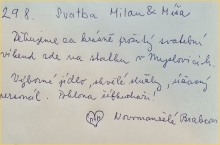 29.8. Svatba Milan & Míša
Děkujeme za krásně prožitý svatební
víkend zde na statku v Myslovicích.
Výborné jídlo, skvělé služby, úžasný
personál. Poklona šéfkuchaři!
Novomanželé